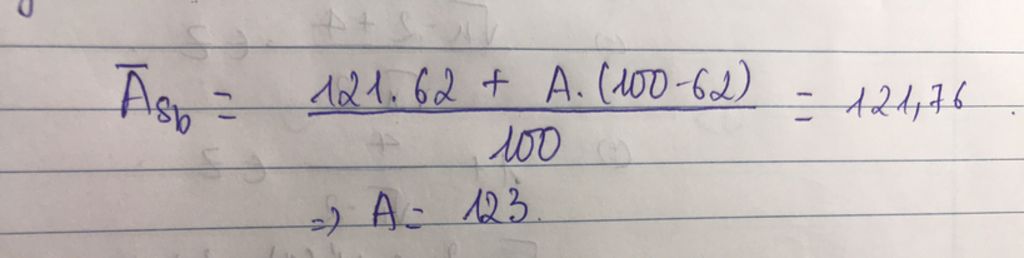 Ā_Sb = (121.62 + A.(100-62)) / 100 = 121,76.
=> A = 123.